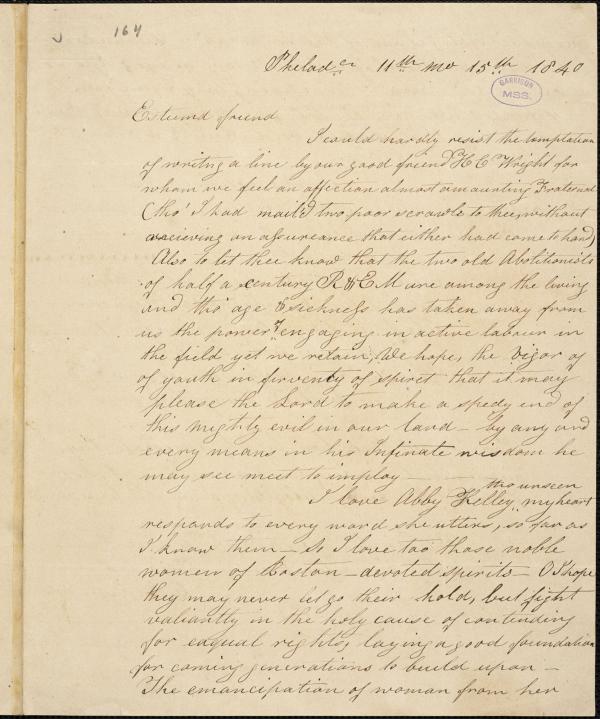 164
Philad.a 11th mo 15th 1840
GARRISON
MSS.
Esteemd friend
I could hardly resist the temptation
of writing a line by our good friend H C Wright for
whom we feel an affection almost amounting Fraternal
(tho' I had mail'd two poor scrawls to thee, without
recieving an assureance that either had come to hand)
Also to let thee know that the two old Abolitionists
of half a century R & E M are among the living
and tho' age & sickness has taken away from
us the power of engaging in active labour in
the field yet we retain, We hope, the vigor of
of youth in firventcy of spiret that it may
please the Lord to make a spedy end of
this mighty evil in our land — by any and
every means in his Infinate wisdom he
may see meet to imploy —
I love Abby Kelley tho unseen, my heart
responds to every word she utters, so far as
I know them — So I love too those noble
women of Boston — devoted spirits — O I hope
they may never let go their hold, but fight
valiantly in the holy cause of contending
for eaqual rights, laying a good foundation
for coming generations to build upon —
The emancipation of woman from her